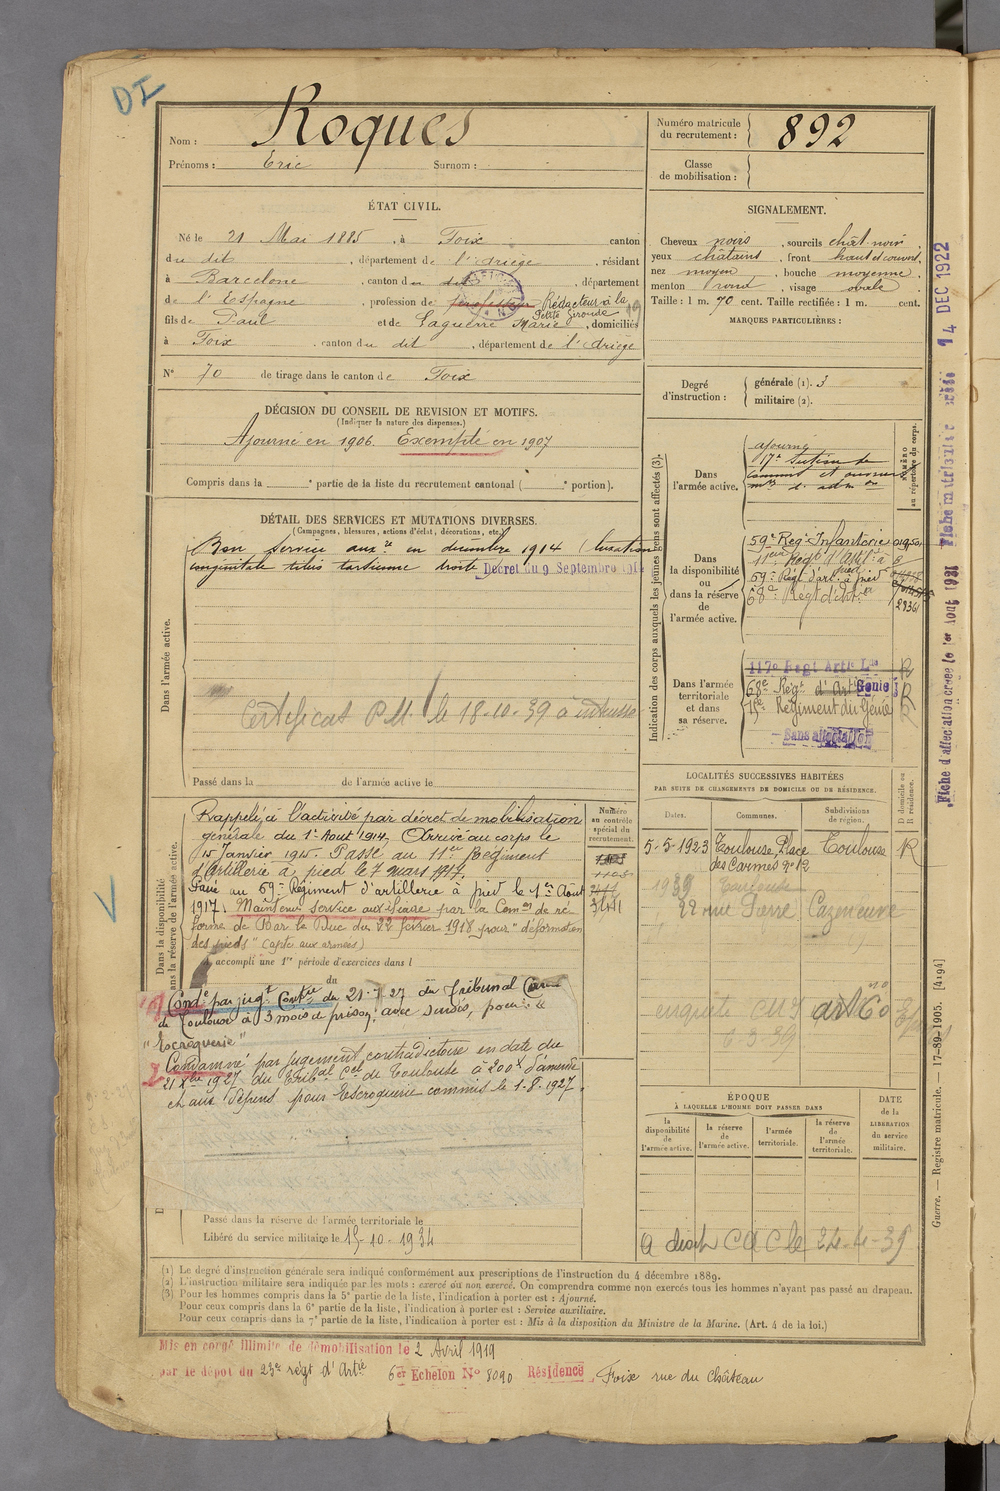 DI
Nom : Roques
Prénoms : Eric Surnom :
Numéro matricule du recrutement : 892
Classe de mobilisation :
ÉTAT CIVIL.
Né le 21 Mai 1885, à Foix canton
du dit, département de l'Ariège, résidant
à Barcelone, canton du dit, département
de l'Espagne, profession de professeur Rédacteur à la Petite Gironde
fils de Paul et de Laguerre Marie, domiciliés
à Foix, canton du dit, département de l'Ariège
N° 70 de tirage dans le canton de Foix
SIGNALEMENT.
Cheveux noirs, sourcils chât. noir
yeux châtains, front haut et couvert,
nez moyen, bouche moyenne,
menton rond, visage ovale.
Taille : 1 m. 70 cent. Taille rectifiée : 1 m. cent.
MARQUES PARTICULIÈRES :
Degré d'instruction : générale (1). 3
militaire (2).
DÉCISION DU CONSEIL DE REVISION ET MOTIFS.
(Indiquer la nature des dispenses.)
Ajourné en 1906. Exempté en 1907
Compris dans la e partie de la liste du recrutement cantonal ( e portion).
DÉTAIL DES SERVICES ET MUTATIONS DIVERSES.
(Campagnes, blessures, actions d'éclat, décorations, etc.)
Dans l'armée active.
Bon service auxre en décembre 1914 (luxation
congénitale tibio tarsienne droite Décret du 9 Septembre 1914
Certificat P.M. le 18-10-39 à
Passé dans la de l'armée active le
Indication des corps auxquels les jeunes gens sont affectés (3).
NUMÉRO au répertoire du corps.
Dans l'armée active.
ajourné
17e Section de
commis et ouvriers
mres d'admon
Dans la disponibilité ou dans la réserve de l'armée active.
59e Reg. Infanterie
11eme Regt d'Artie à pied
69e Régt d'art. à pied
68e Regt d'Artie
29361
Dans l'armée territoriale et dans sa réserve.
117e Regt Artie Lde R
68e Régt d'Artie Génie R
15e Régiment du Génie R
Sans affectation
Fiche d'affectation créée le 1er Aout 1931 Fiche matriculaire 14 DEC 1922
LOCALITÉS SUCCESSIVES HABITÉES
PAR SUITE DE CHANGEMENTS DE DOMICILE OU DE RÉSIDENCE.
Dates. Communes. Subdivisions de région. D domicile ou R résidence.
5-5-1923 Toulouse, Place des Carmes no 12 Toulouse R
1939 Toulouse
22 rue Pierre Cazeneuve
Dans la disponibilité
dans la réserve de l'armée active.
Numéro au contrôle spécial du recrutement.
Rappelé à l'activité par décret de mobilisation
générale du 1er Aout 1914. Arrivé au corps le
15 Janvier 1915. Passé au 11eme Régiment
d'Artillerie à pied le 7 mars 1917.
Passé au 69e Régiment d'artillerie à pied le 1er Août
1917. Maintenu service auxiliaire par la Comon de ré-
forme de Bar le Duc du 22 février 1918 pour "déformation
des pieds" (apte aux armées)
A accompli une 1re période d'exercices dans l
du
1) Condé par jugt Contre du 21-7-27 du Tribunal
de Toulouse à 3 mois de prison, avec sursis, pour :
"Escroquerie"
2 Condamné par jugement contradictoire en date du
21 Xbre 1927 du Tribal Cel de Toulouse à 200f d'amende
et aux dépens pour Escroquerie commis le 1.8.1927.
ÉPOQUE
À LAQUELLE L'HOMME DOIT PASSER DANS
la disponibilité de l'armée active.
la réserve de l'armée active.
l'armée territoriale.
la réserve de l'armée territoriale.
DATE de la LIBÉRATION du service militaire.
Passé dans la réserve de l'armée territoriale le
Libéré du service militaire le 15-10-1934
a droit C a C le 24-4-39
(1) Le degré d'instruction générale sera indiqué conformément aux prescriptions de l'instruction du 4 décembre 1889.
(2) L'instruction militaire sera indiquée par les mots : exercé ou non exercé. On comprendra comme non exercés tous les hommes n'ayant pas passé au drapeau.
(3) Pour les hommes compris dans la 5e partie de la liste, l'indication à porter est : Ajourné.
Pour ceux compris dans la 6e partie de la liste, l'indication à porter est : Service auxiliaire.
Pour ceux compris dans la 7e partie de la liste, l'indication à porter est : Mis à la disposition du Ministre de la Marine. (Art. 4 de la loi.)
Guerre. — Registre matricule. — 17-89-1905. [4194]
Mis en congé illimité de démobilisation le 2 Avril 1919
par le dépot du 23e régt d'Artie 6er Echelon No 8090 Résidence Foix rue du Château